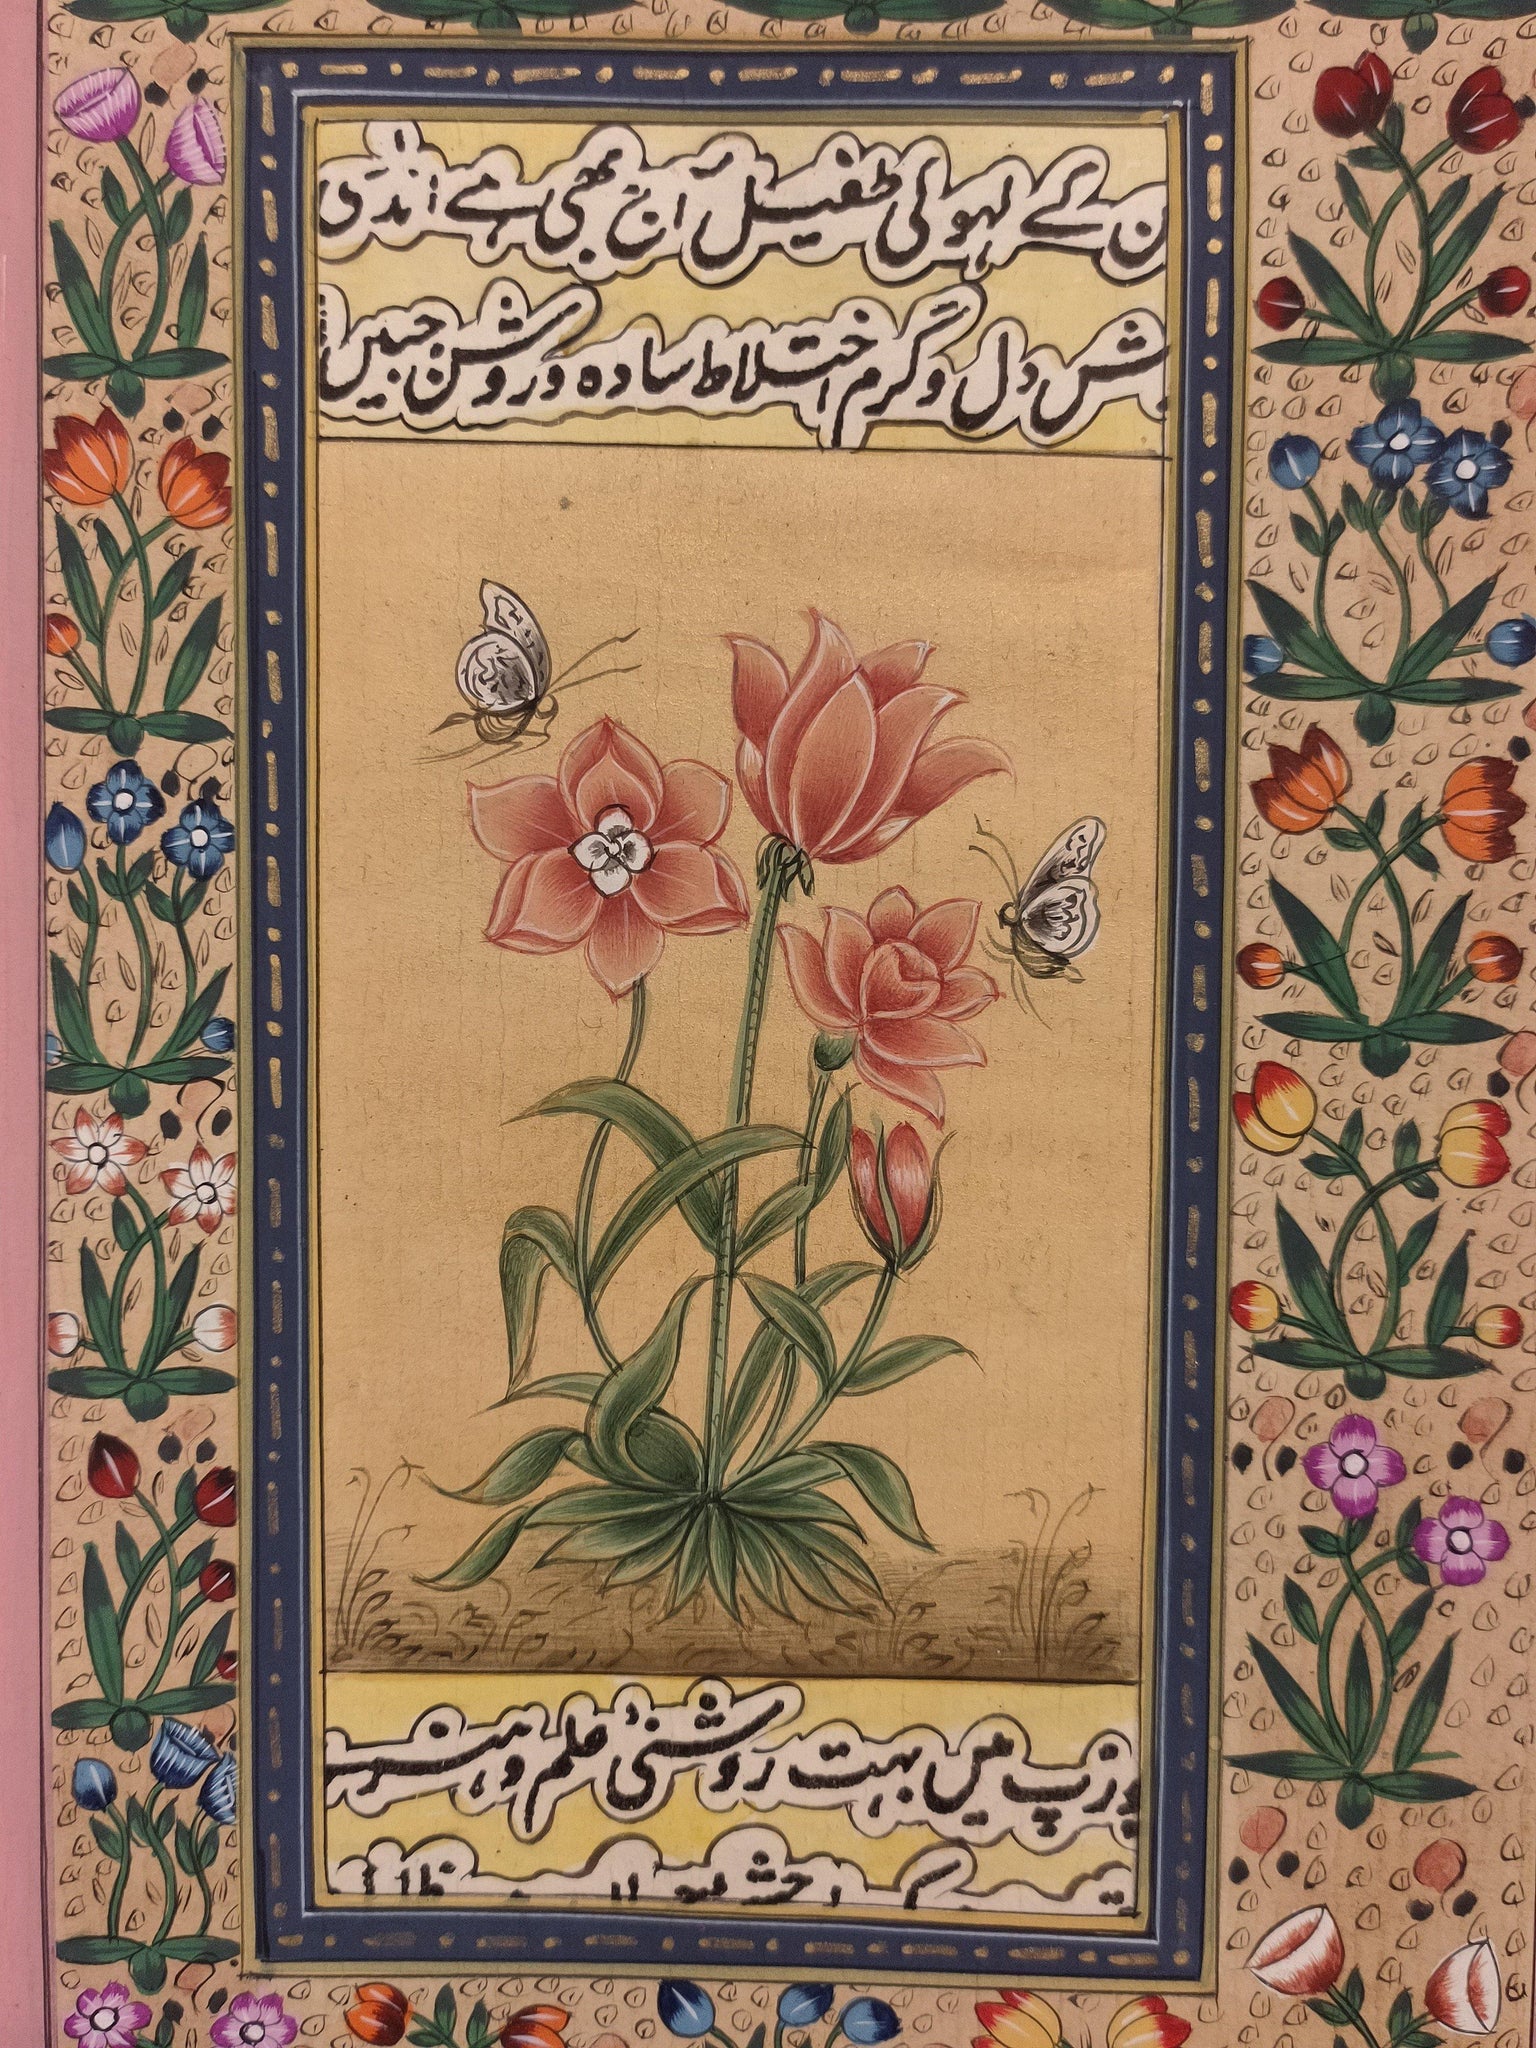 ن کے لہو کی طفیل آج بھی ہے
ش دل و گرم اختلاط سادہ و روشن جبیں
میں بہت روشنئ علم و ہنر